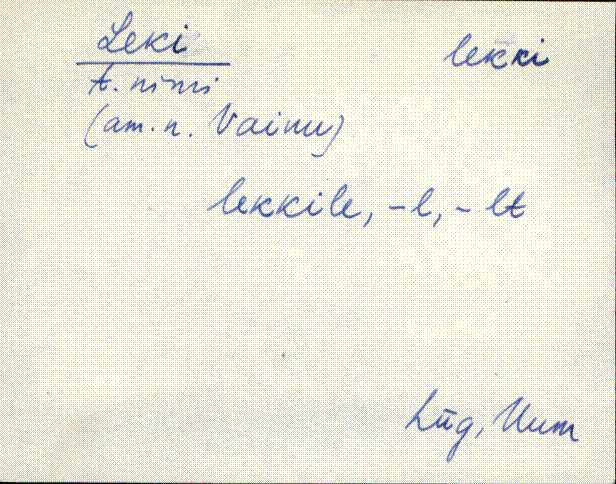 Leki lekki
t. nimi
(am. n. Vainu)
lekkile, -l, -lt
Lüg, Uum